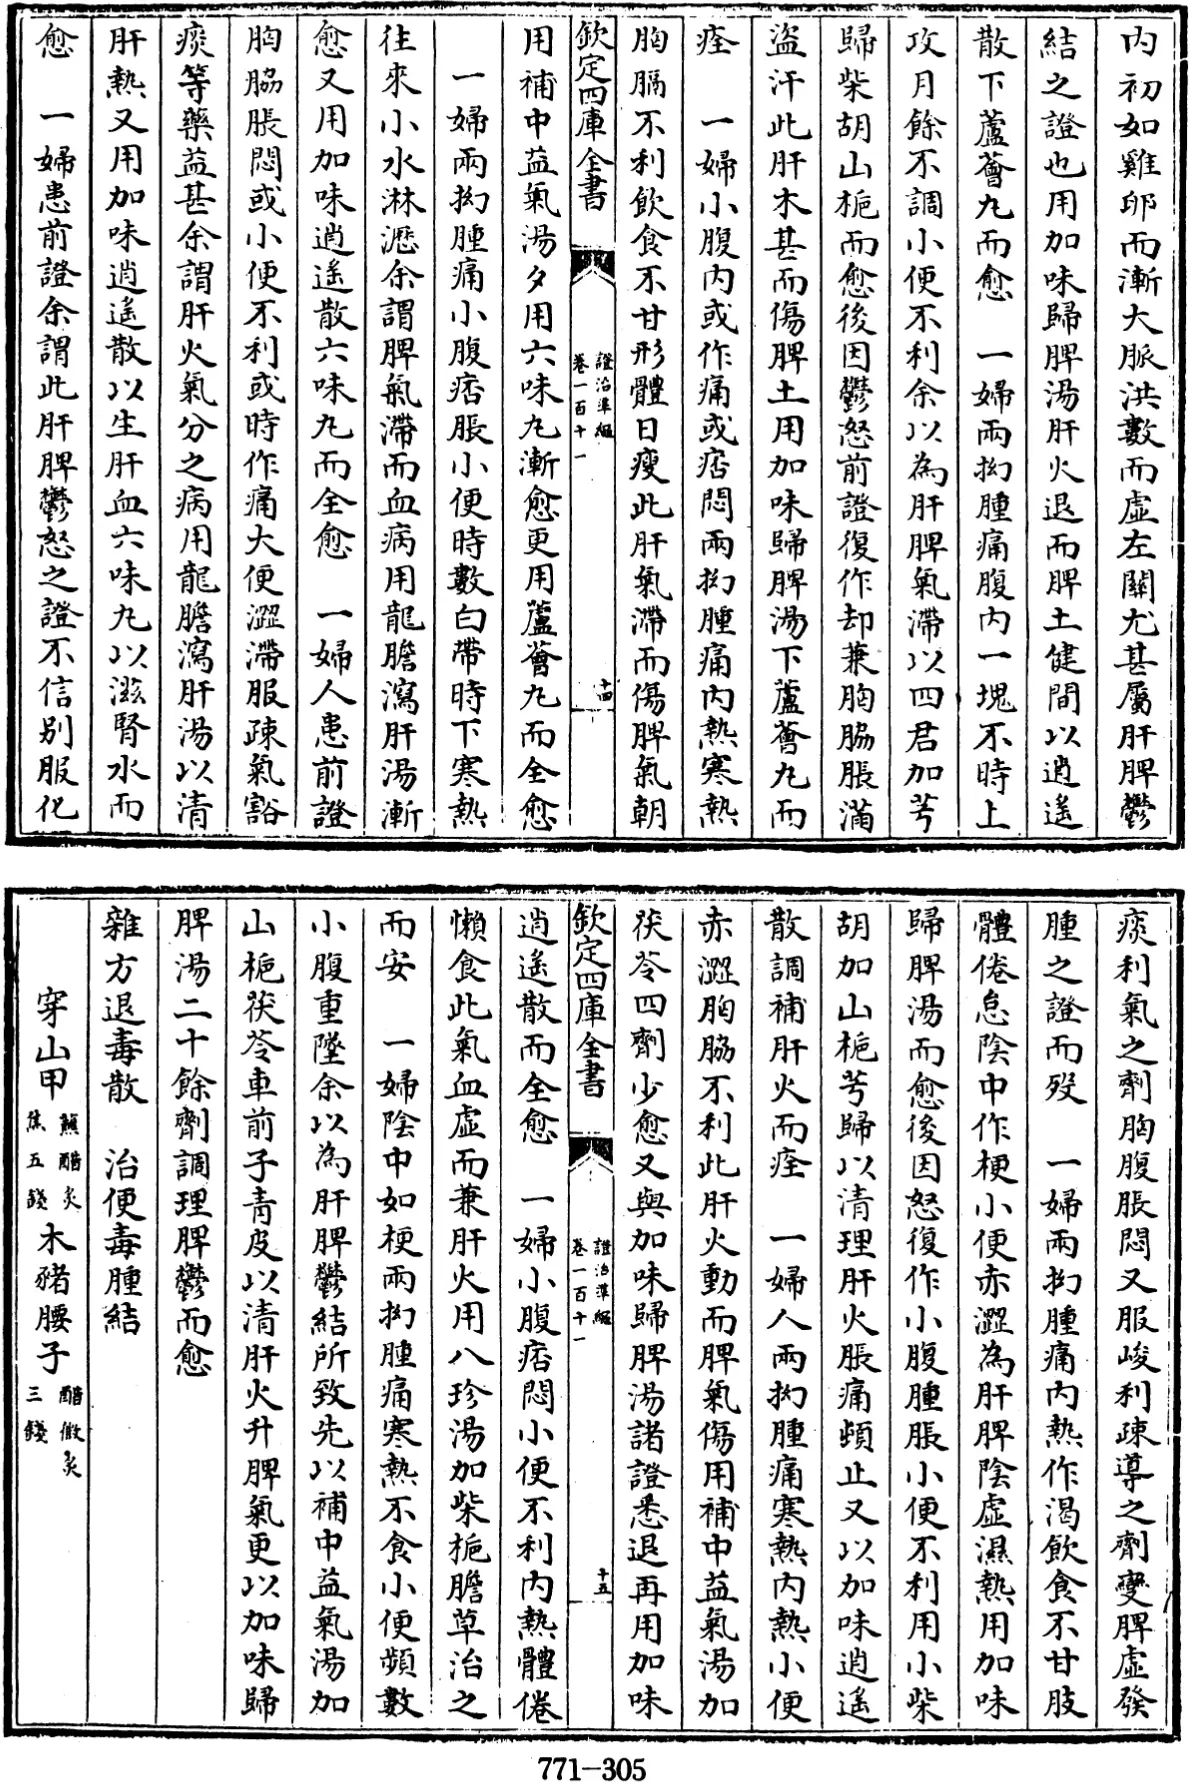 内初如雞卵而漸大脈洪數而虛左關尤甚屬肝脾鬱
結之證也用加味歸脾湯肝火退而脾土健間以逍遙
散下蘆薈丸而愈　一婦兩拗腫痛腹内一塊不時上
攻月餘不調小便不利余以為肝脾氣滯以四君加芎
歸柴胡山梔而愈後因鬱怒前證復作却兼胸脇脹滿
盜汗此肝木甚而傷脾土用加味歸脾湯下蘆薈丸而
痊　一婦小腹内或作痛或痞悶兩拗腫痛内熱寒熱
胸膈不利飲食不甘形體日瘦此肝氣滯而傷脾氣朝
欽定四庫全書　證治準繩　卷一百十一　十四
用補中益氣湯夕用六味丸漸愈更用蘆薈丸而全愈
一婦兩拗腫痛小腹痞脹小便時數白帶時下寒熱
往來小水淋瀝余謂脾氣滯而血病用龍膽瀉肝湯漸
愈又用加味逍遙散六味丸而全愈　一婦人患前證
胸脇脹悶或小便不利或時作痛大便澀滯服疎氣豁
痰等藥益甚余謂肝火氣分之病用龍膽瀉肝湯以清
肝熱又用加味逍遙散以生肝血六味丸以滋腎水而
愈　一婦患前證余謂此肝脾鬱怒之證不信别服化
痰利氣之劑胸腹脹悶又服峻利疎導之劑變脾虛發
腫之證而歿　一婦兩拗腫痛内熱作渴飲食不甘肢
體倦怠陰中作梗小便赤澀為肝脾陰虛濕熱用加味
歸脾湯而愈後因怒復作小腹腫脹小便不利用小柴
胡加山梔芎歸以清理肝火脹痛頓止又以加味逍遙
散調補肝火而痊　一婦人兩拗腫痛寒熱内熱小便
赤澀胸脇不利此肝火動而脾氣傷用補中益氣湯加
茯苓四劑少愈又與加味歸脾湯諸證悉退再用加味
欽定四庫全書　證治準繩　卷一百十一　十五
逍遙散而全愈　一婦小腹痞悶小便不利内熱體倦
懶食此氣血虛而兼肝火用八珍湯加柴梔膽草治之
而安　一婦陰中如梗兩拗腫痛寒熱不食小便頻數
小腹重墜余以為肝脾鬱結所致先以補中益氣湯加
山梔茯苓車前子青皮以清肝火升脾氣更以加味歸
脾湯二十餘劑調理脾鬱而愈
雜方退毒散　治便毒腫結
穿山甲 蘸醋炙焦五錢 木豬腰子 醋微炙三錢
771-305